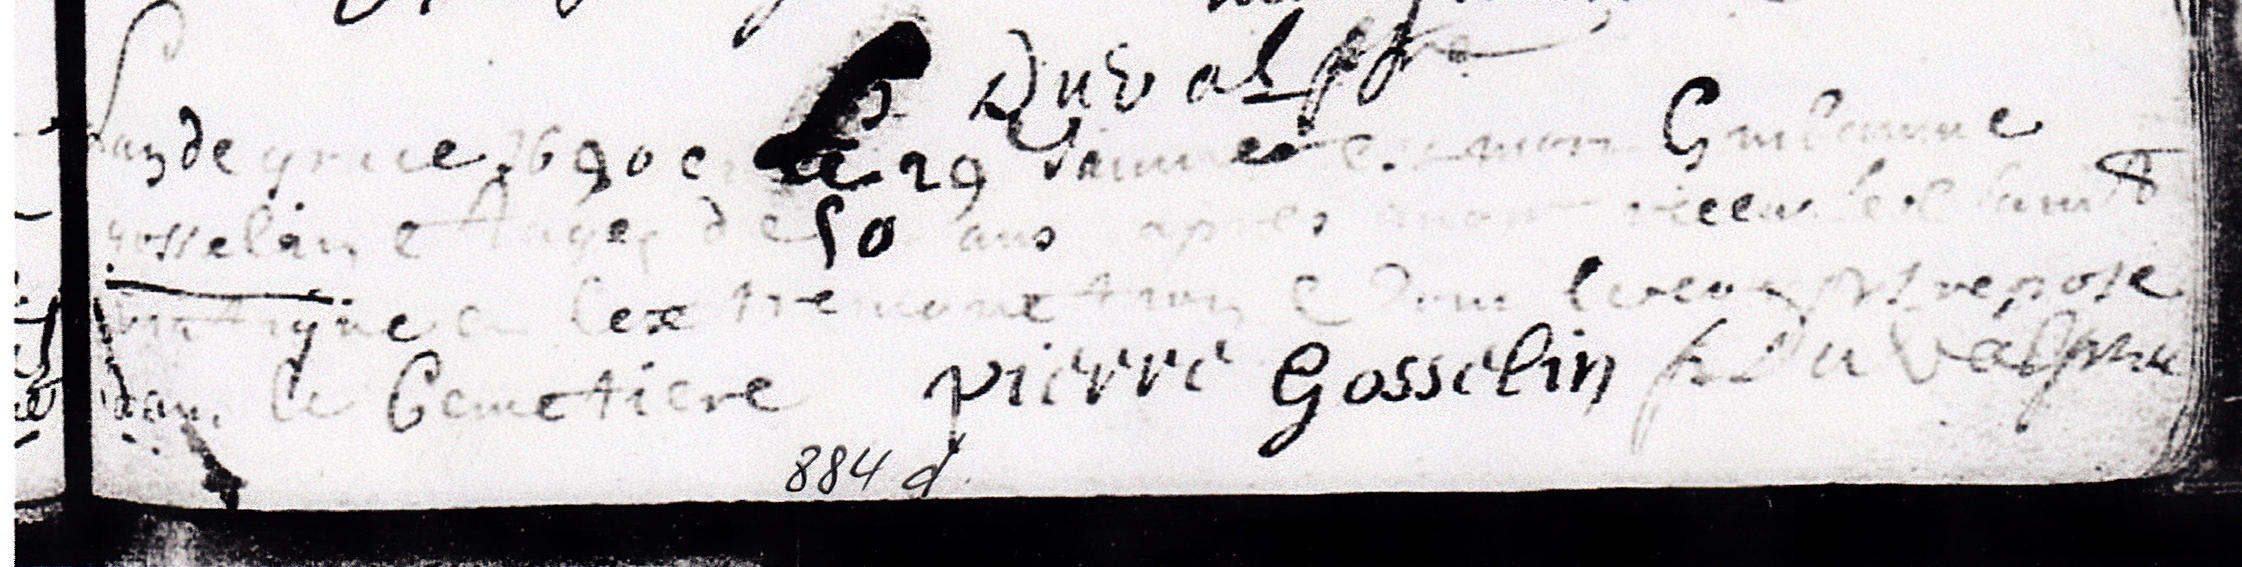 Duval pbre
Lan de grace 1690 le 29 Januier est mort Guillaume
gosselin Aagé de 50 ans apres auoir receu le saint
viatique e lextremonction e dont le corps repose
dans le Cemetiere pierre Gosselin p Duval pbre
884 d.